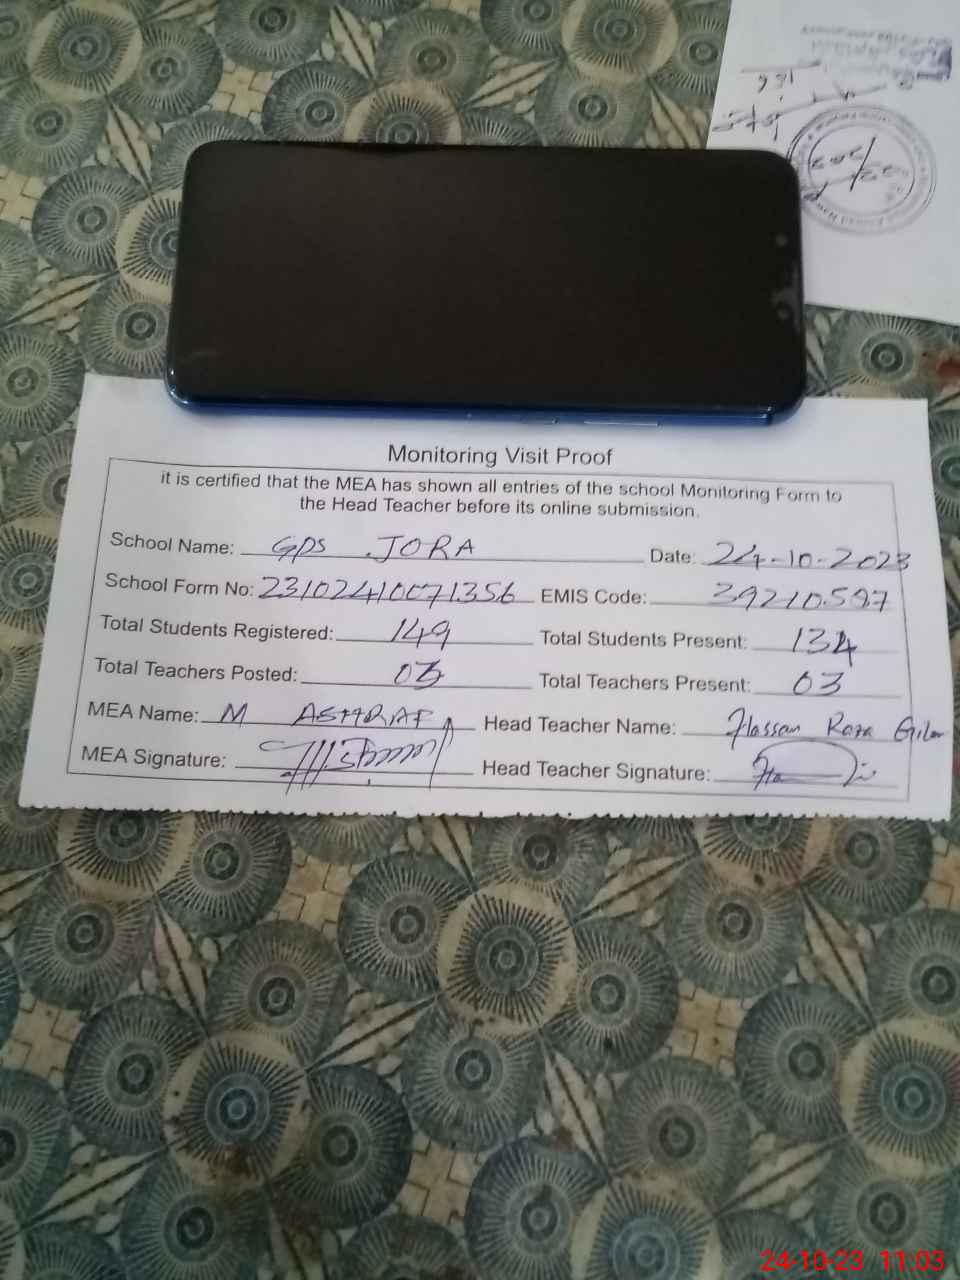 Monitoring Visit Proof
it is certified that the MEA has shown all entries of the school Monitoring Form to
the Head Teacher before its online submission.
School Name: GPS JORA Date: 24-10-2023
School Form No: 23102410071356 EMIS Code: 39210597
Total Students Registered: 149 Total Students Present: 134
Total Teachers Posted: 03 Total Teachers Present: 03
MEA Name: M ASHRAF Head Teacher Name: Hassan Raza
MEA Signature: Head Teacher Signature:
24-10-23 11:03